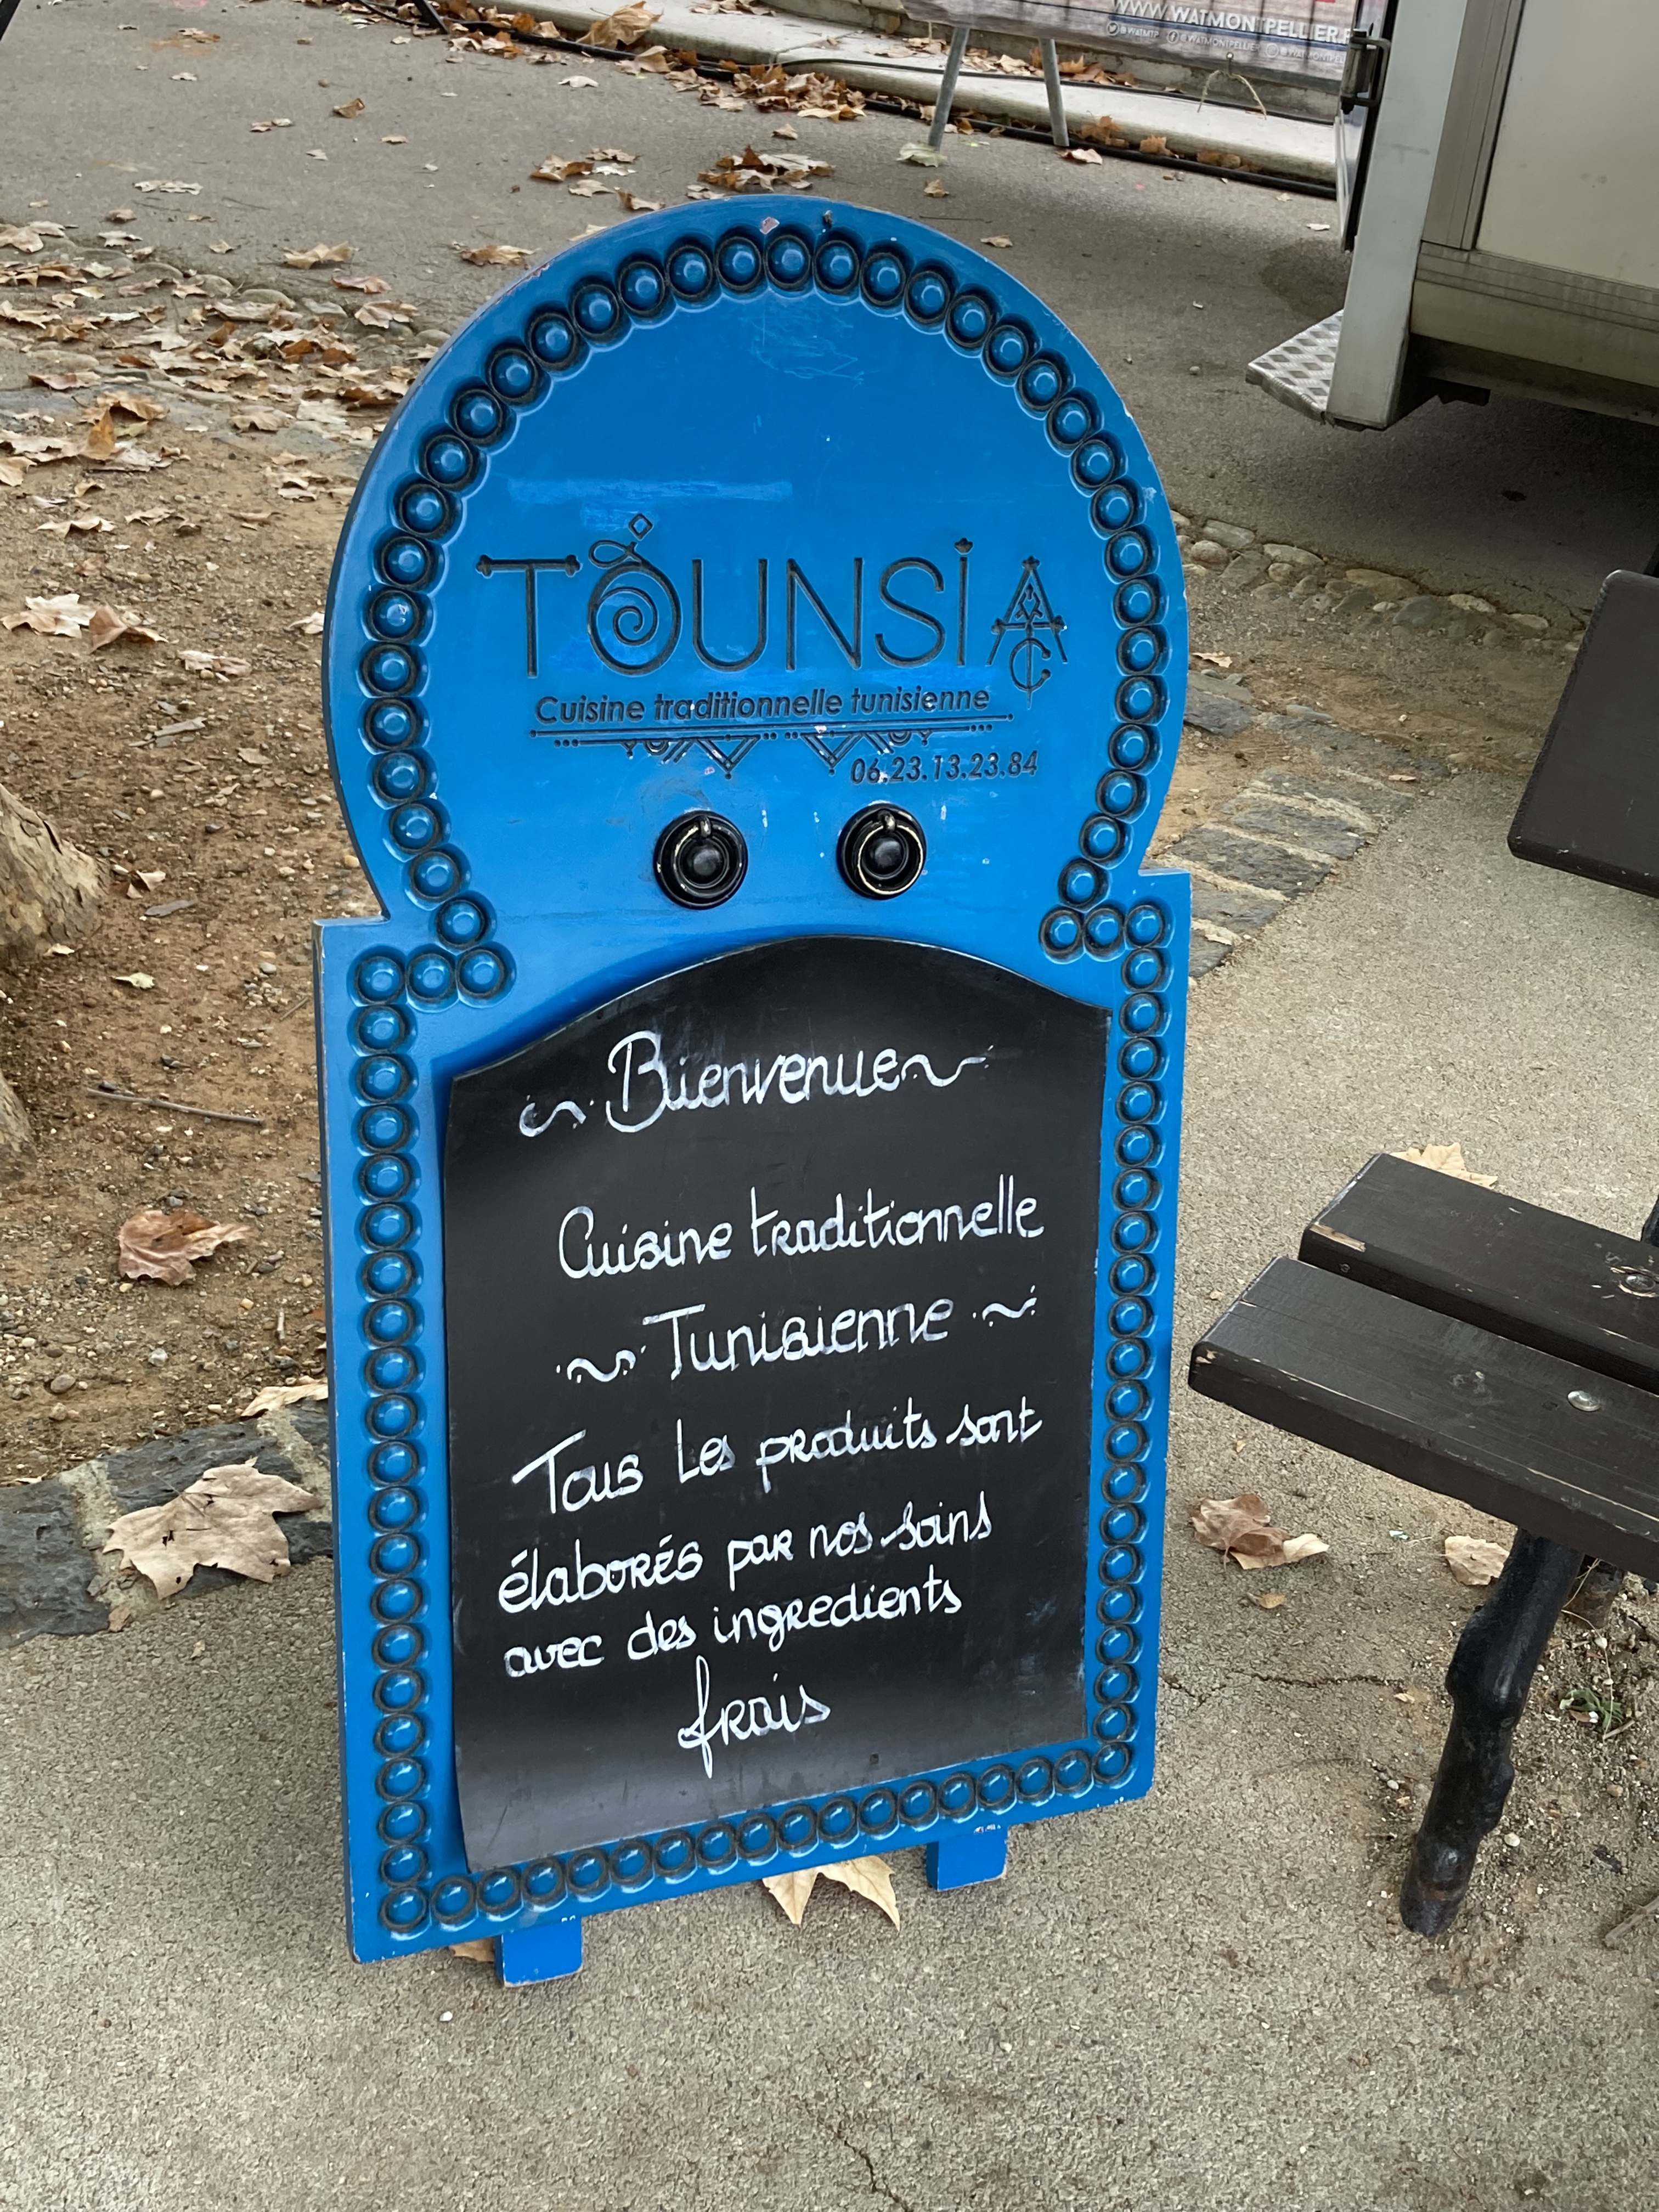 WWW.WATMONTPELLIER.F
@WATMTP @WATMONTPELLIER @WATMONTPEL
TOUNSIA
Cuisine traditionnelle tunisienne
06.23.13.23.84
Bienvenue
Cuisine traditionnelle
Tunisienne
Tous les produits sont
élaborés par nos soins
avec des ingredients
frais